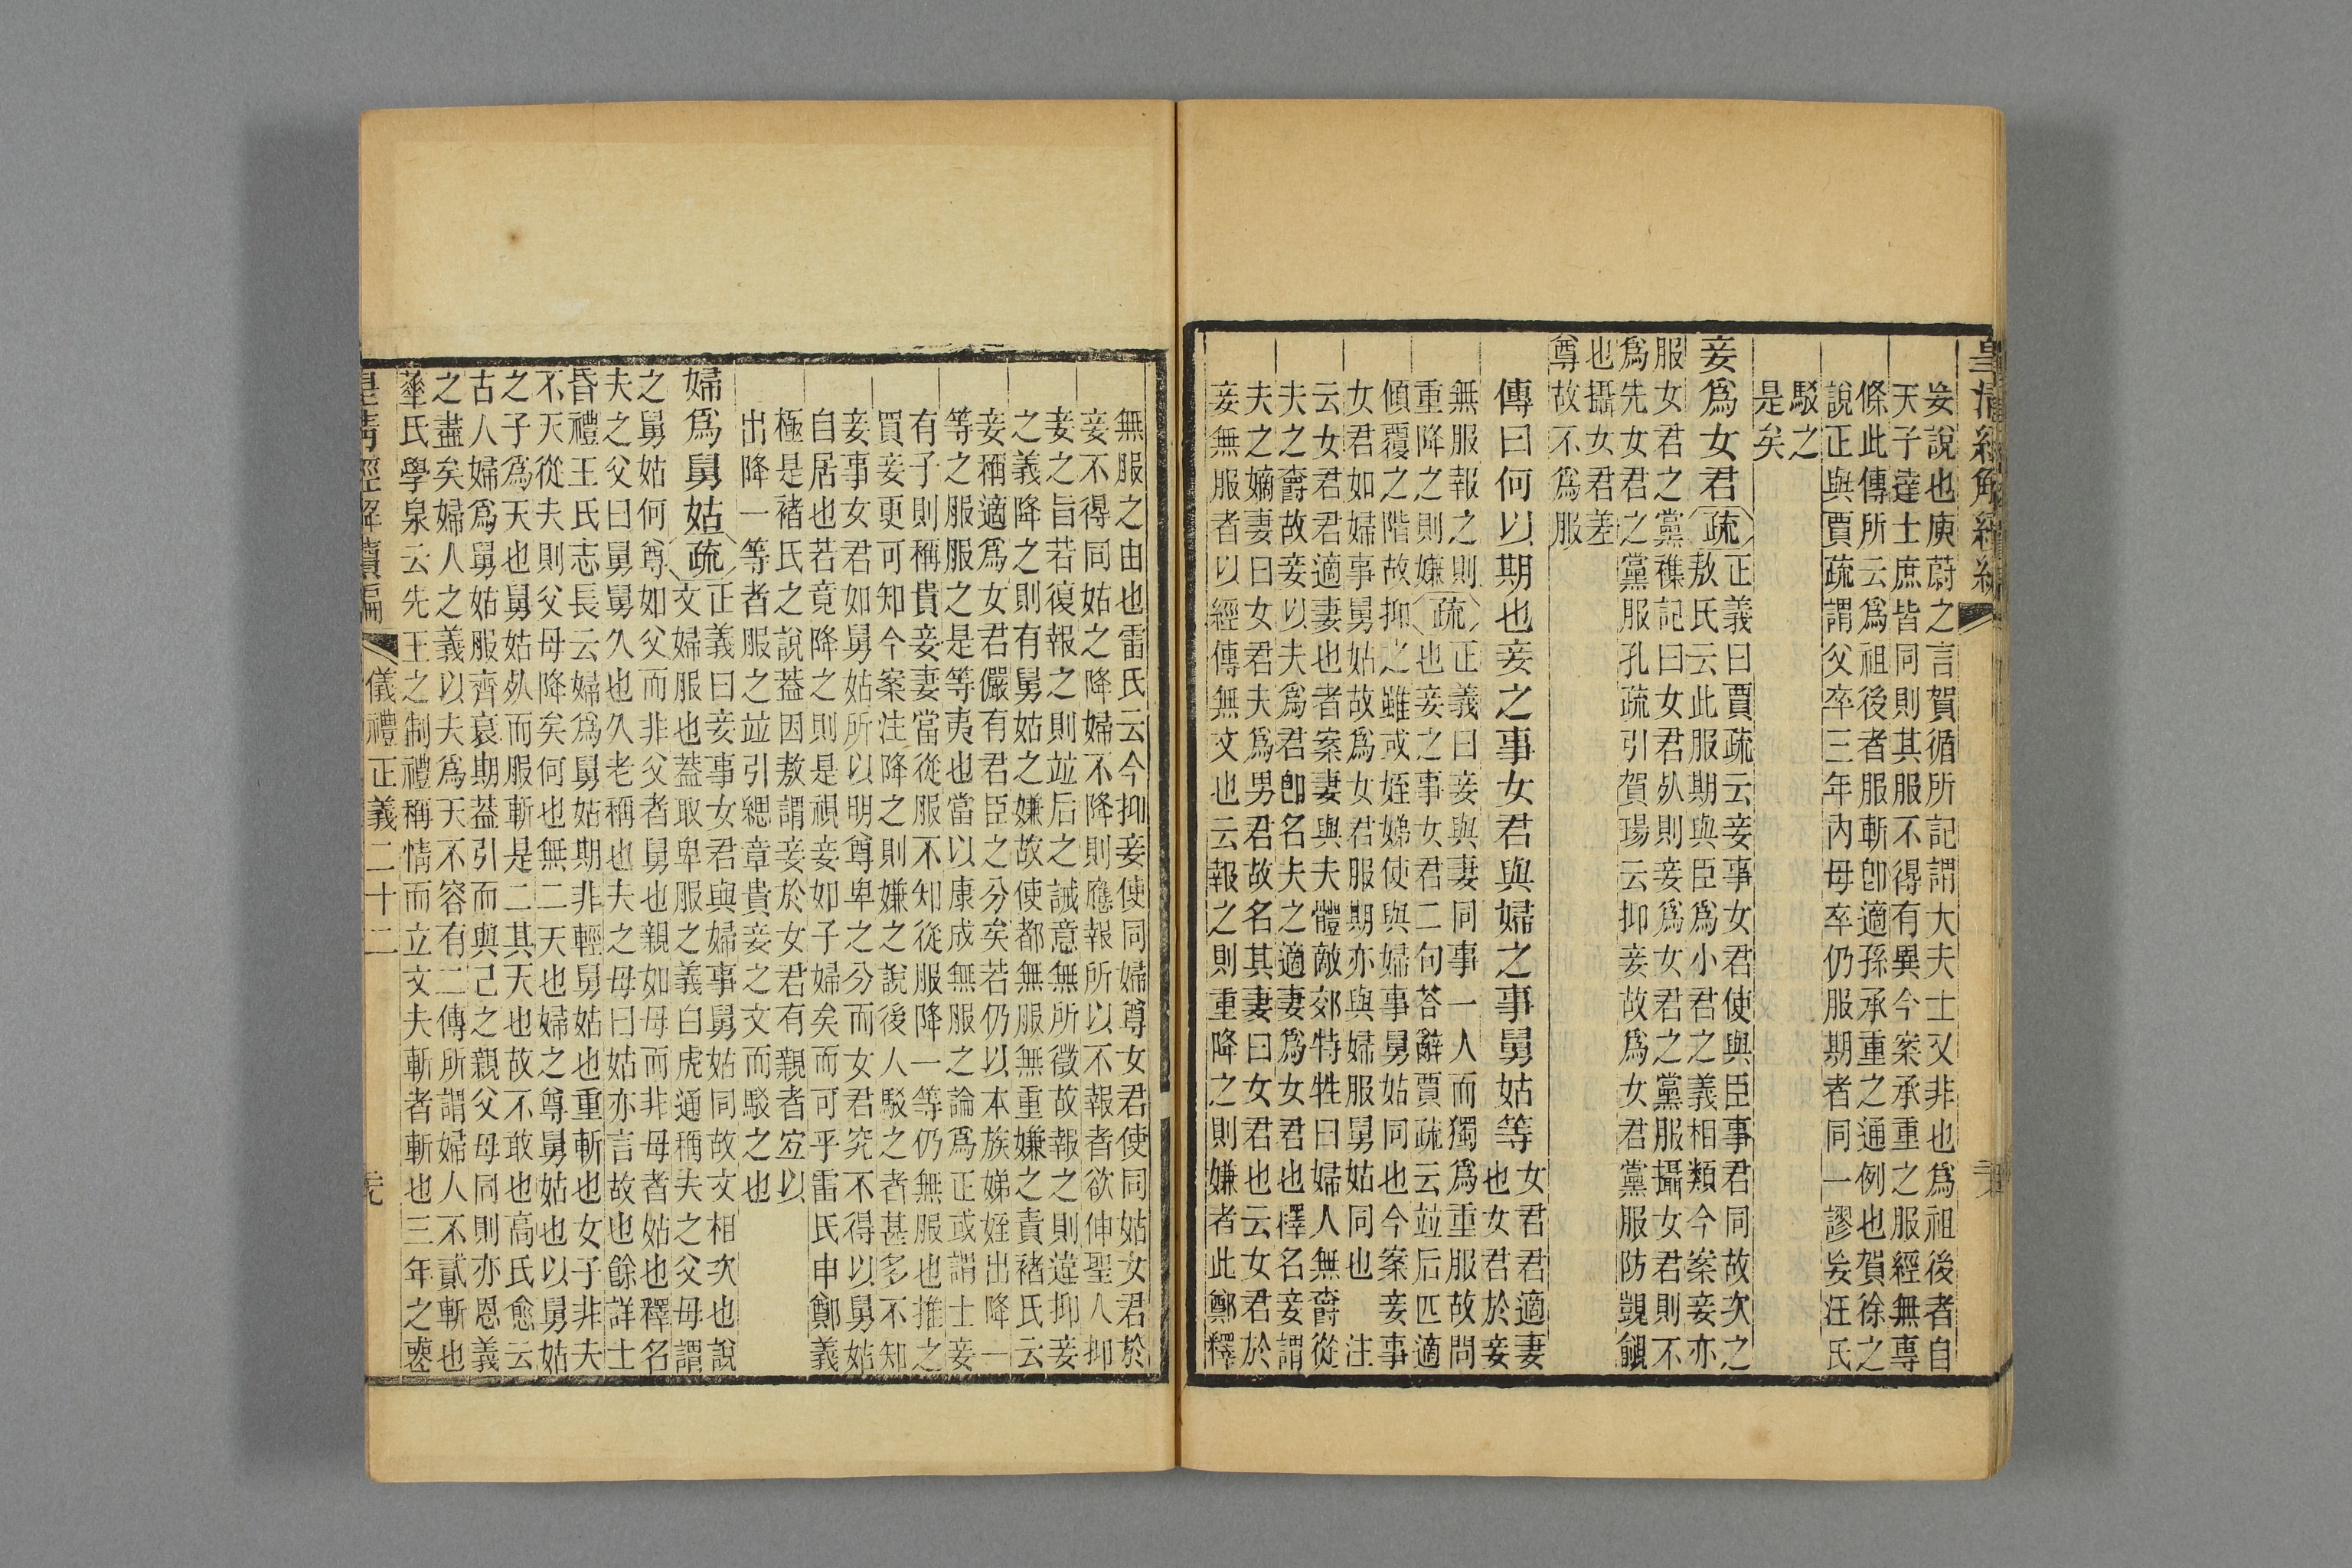 皇清經解續編
妾說也庾蔚之言賀循所記謂大夫士又非也爲祖後者自
天子達士庶皆同則其服不得有異今案承重之服經無專
條此傳所云爲祖後者服斬卽適孫承重之通例也賀徐之
說正與賈疏謂父卒三年內母卒仍服期者同一謬妄汪氏
駁之
是矣
妾爲女君疏
正義曰賈疏云妾事女君使與臣事君同故次之
敖氏云此服期與臣爲小君之義相類今案妾亦
服女君之黨襍記曰女君死則妾爲女君之黨服攝女君則不
爲先女君之黨服孔疏引賀瑒云抑妾故爲女君黨服防覬覦
也攝女君差
尊故不爲服
傳曰何以期也妾之事女君與婦之事舅姑等
女君君適妻
也女君於妾
無服報之則
重降之則嫌疏
正義曰妾與妻同事一人而獨爲重服故問
也妾之事女君二句荅辭賈疏云竝后匹適
傾覆之階故抑之雖或姪娣使與婦事舅姑同也今案妾事
女君如婦事舅姑故爲女君服期亦與婦服舅姑同也注
云女君君適妻也者案妻與夫體敵郊特牲曰婦人無爵從
夫之爵故妾以夫爲君卽名夫之適妻爲女君也釋名妾謂
夫之嫡妻曰女君夫爲男君故名其妻曰女君也云女君於
妾無服者以經傳無文也云報之則重降之則嫌者此鄭釋
無服之由也雷氏云今抑妾使同婦尊女君使同姑女君於
妾不得同姑之降婦不降則應報所以不報者欲伸聖人抑
妾之旨若復報之則竝后之誡意無所徵故報之則違抑妾
之義降之則有舅姑之嫌故使都無服無重嫌之責褚氏云
妾稱適爲女君儼有君臣之分矣若仍以本族娣姪出降一
等之服服之是等夷也當以康成無服之論爲正或謂士妾
有子則稱貴妾妻當從服不知從服降一等仍無服也推之
買妾更可知今案注降之則嫌之說後人駁之者甚多不知
妾事女君如舅姑所以明尊卑之分而女君究不得以舅姑
自居也若竟降之則是視妾如子婦矣而可乎雷氏申鄭義
極是褚氏之說葢因敖謂妾於女君有親者宐以
出降一等者服之竝引緦章貴妾之文而駁之也
婦爲舅姑疏
正義曰妾事女君與婦事舅姑同故文相次也說
文婦服也葢取卑服之義白虎通稱夫之父母謂
之舅姑何尊如父而非父者舅也親如母而非母者姑也釋名
夫之父曰舅舅久也久老稱也夫之母曰姑亦言故也餘詳士
昏禮王氏志長云婦爲舅姑期非輕舅姑也重斬也女子非夫
不天從夫則父母降矣何也無二天也婦之尊舅姑也以舅姑
之子爲天也舅姑死而服斬是二其天也故不敢也高氏愈云
古人婦爲舅姑服齊衰期葢引而與己之親父母同則亦恩義
之盡矣婦人之義以夫爲天不容有二傳所謂婦人不貳斬也
華氏學泉云先王之制禮稱情而立文夫斬者斬也三年之喪
皇清經解續編
儀禮正義二十二